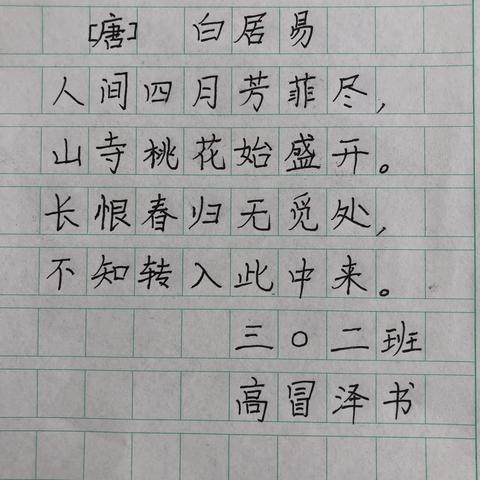 [唐] 白居易
人间四月芳菲尽,
山寺桃花始盛开。
长恨春归无觅处,
不知转入此中来。
三〇二班
高冒泽书